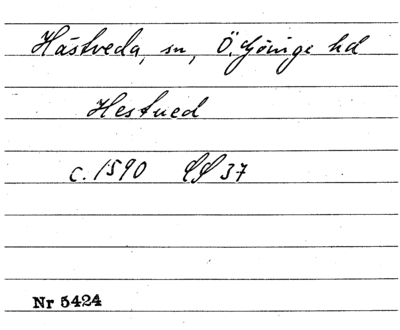 Hästveda, sn, Ö. Göinge hd
Hestued
c. 1590 LL 37
Nr 5424